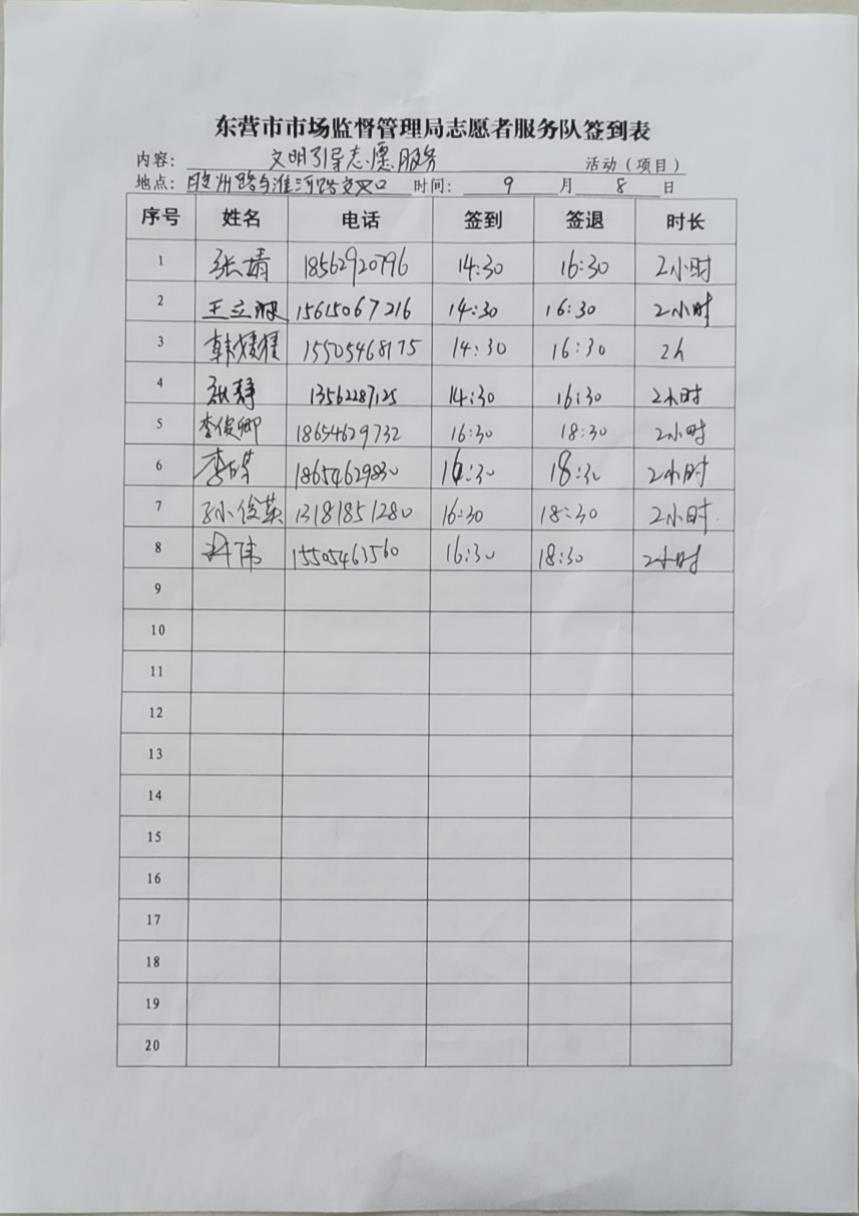 东营市市场监督管理局志愿者服务队签到表
内容: 文明引导志愿服务 活动（项目）
地点: 胶州路与淮河路交叉口 时间: 9 月 8 日
序号 姓名 电话 签到 签退 时长
1 张婧 18562920796 14:30 16:30 2小时
2 王立 15615067216 14:30 16:30 2小时
3 韩媛媛 15505468175 14:30 16:30 2h
4 张静 13562287125 14:30 16:30 2小时
5 李俊卿 18654629732 16:30 18:30 2小时
6 李 18654629830 16:30 18:30 2小时
7 孙俊英 13181851280 16:30 18:30 2小时
8 伟 15505463560 16:30 18:30 2小时
9
10
11
12
13
14
15
16
17
18
19
20